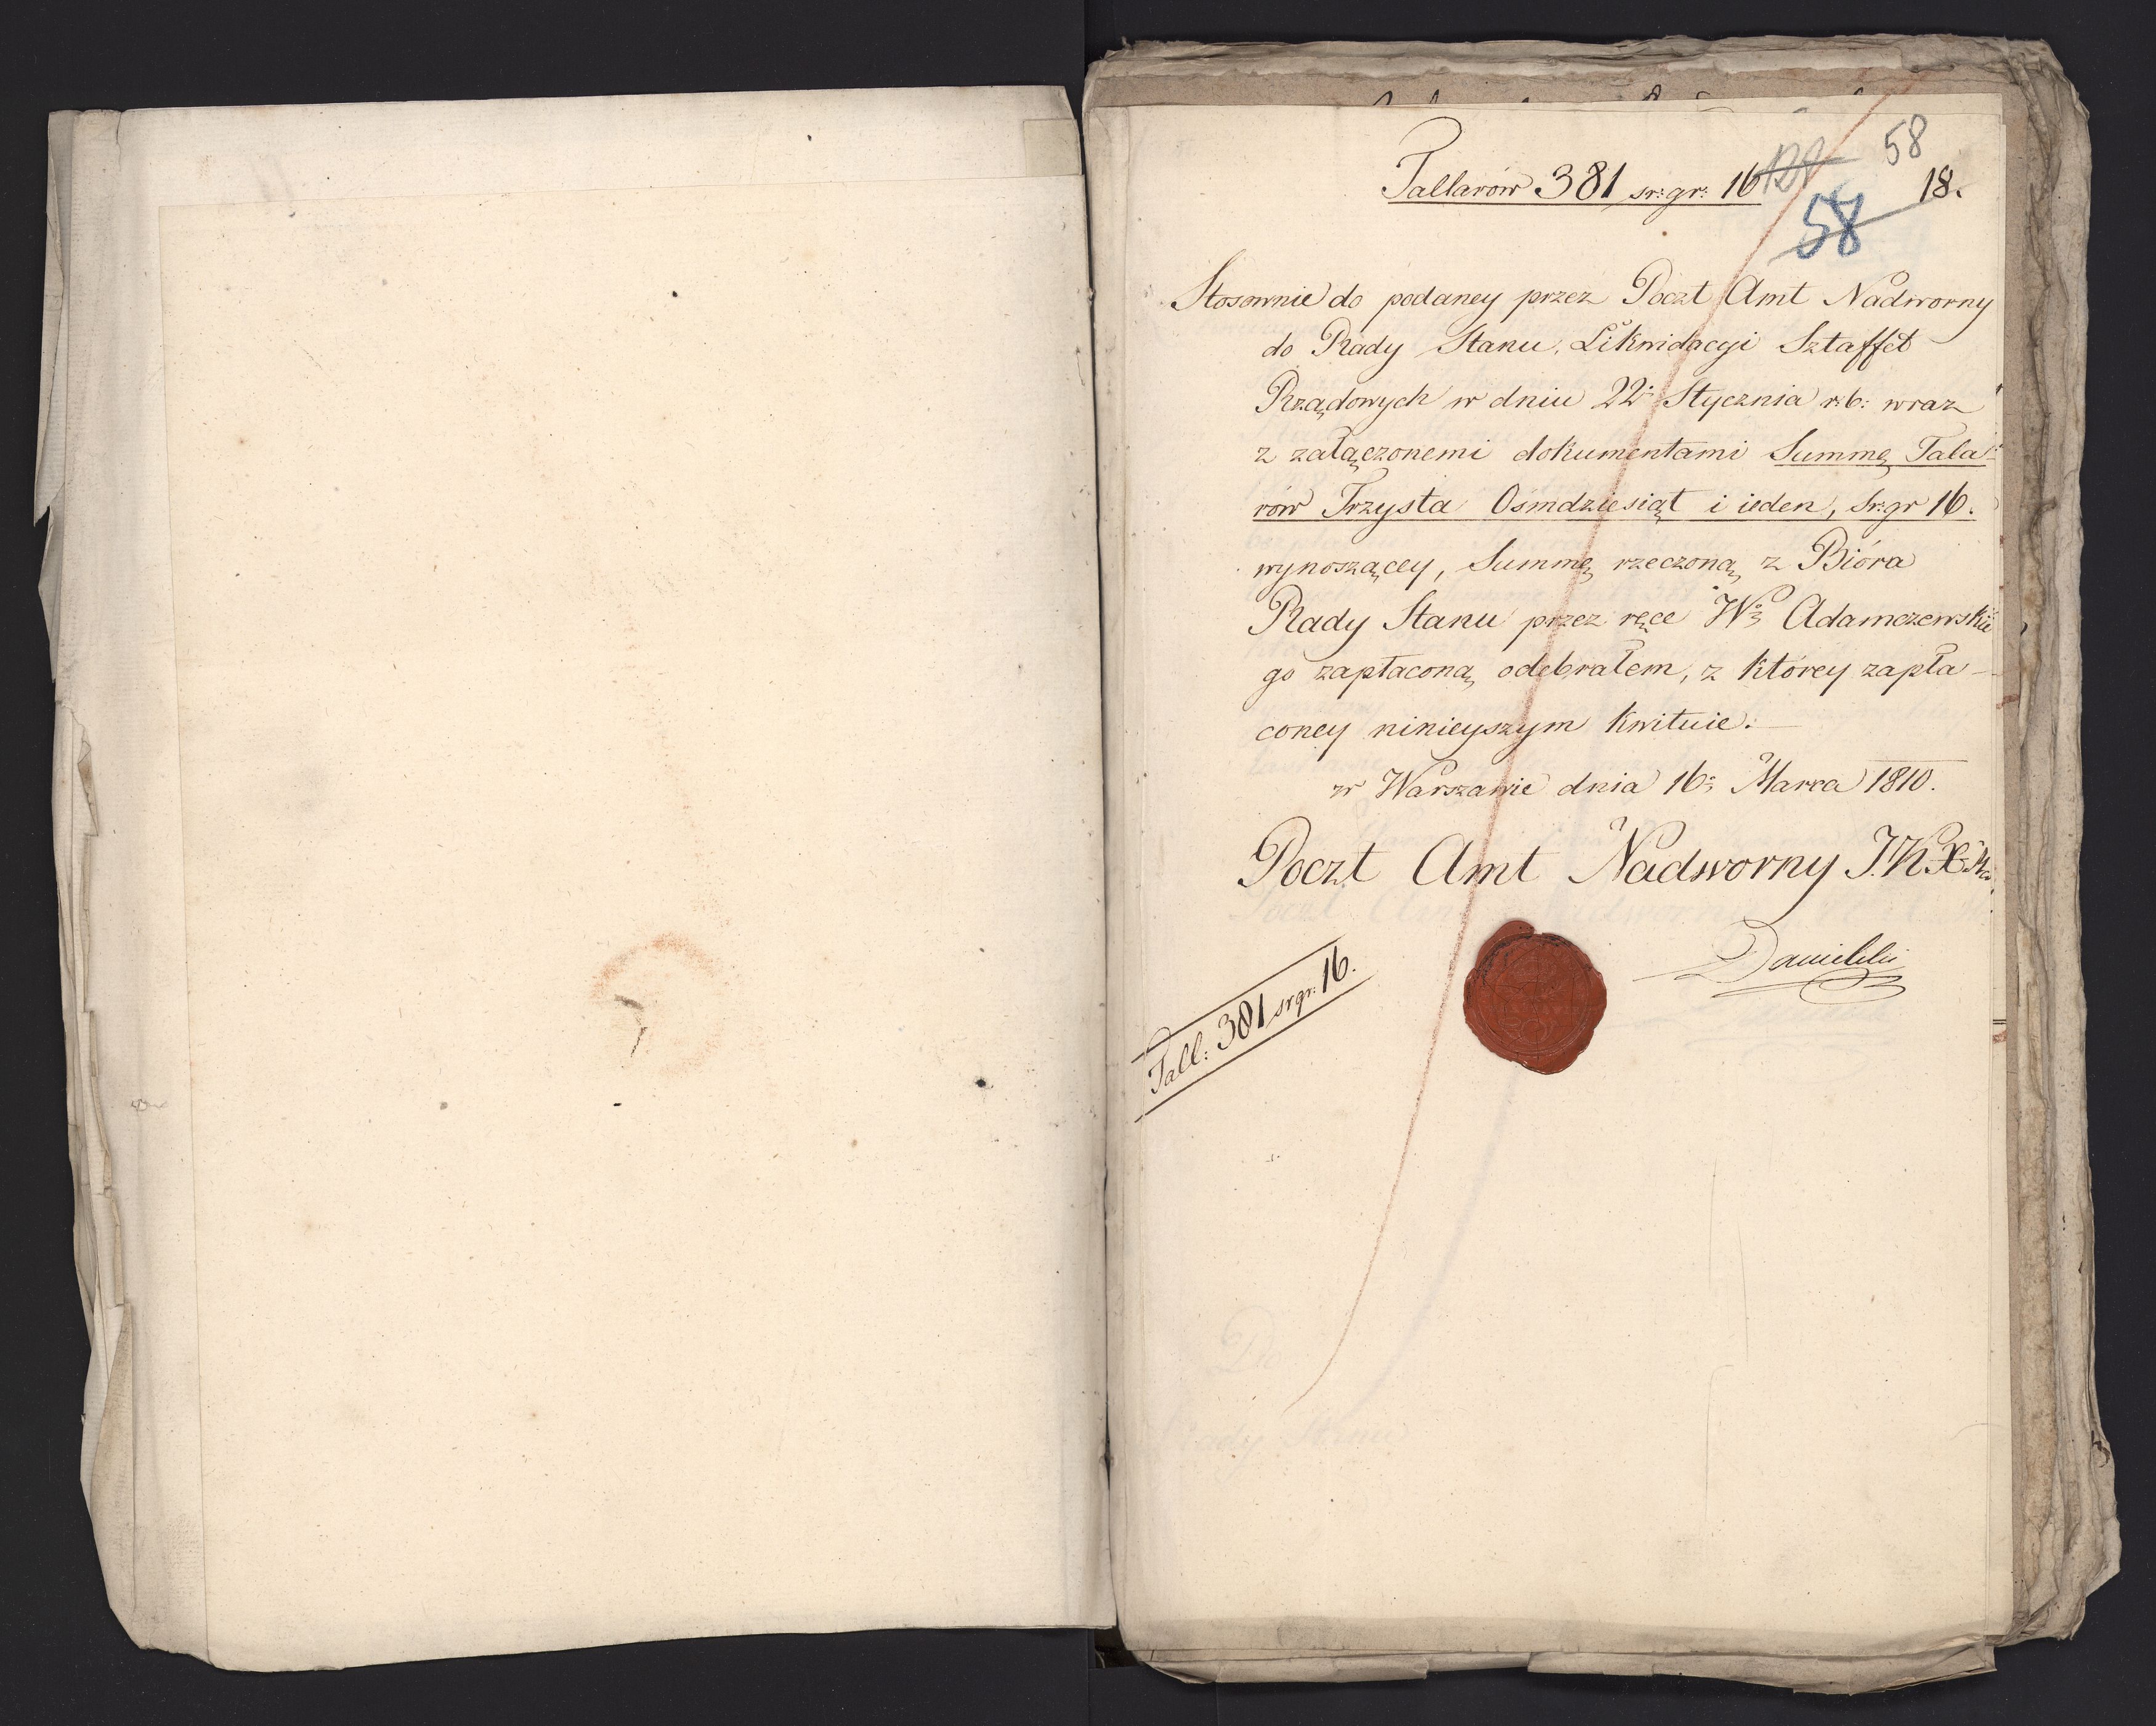 58
Tallarów 381 sr: gr: 16
18.
58
Stosownie do podaney przez Poczt Amt Nadworny
do Rady Stanu, Likwidacyi Sztaffet
Rządowych w dniu 22: Stycznia r: b: wraz
z załączonemi dokumentami Summę Tala-
rów Trzysta Ośmdziesiąt i ieden, Sr: gr 16.
wynoszącey, Summę rzeczoną z Bióra
Rady Stanu przez ręce Wo Adamczewskie
go zapłaconą odebrałem, z którey zapła-
coney ninieyszym kwituie.
w Warszawie dnia 16: Marca 1810.
Poczt Amt Nadworny J. K. X.
Tall: 381 sr gr: 16.